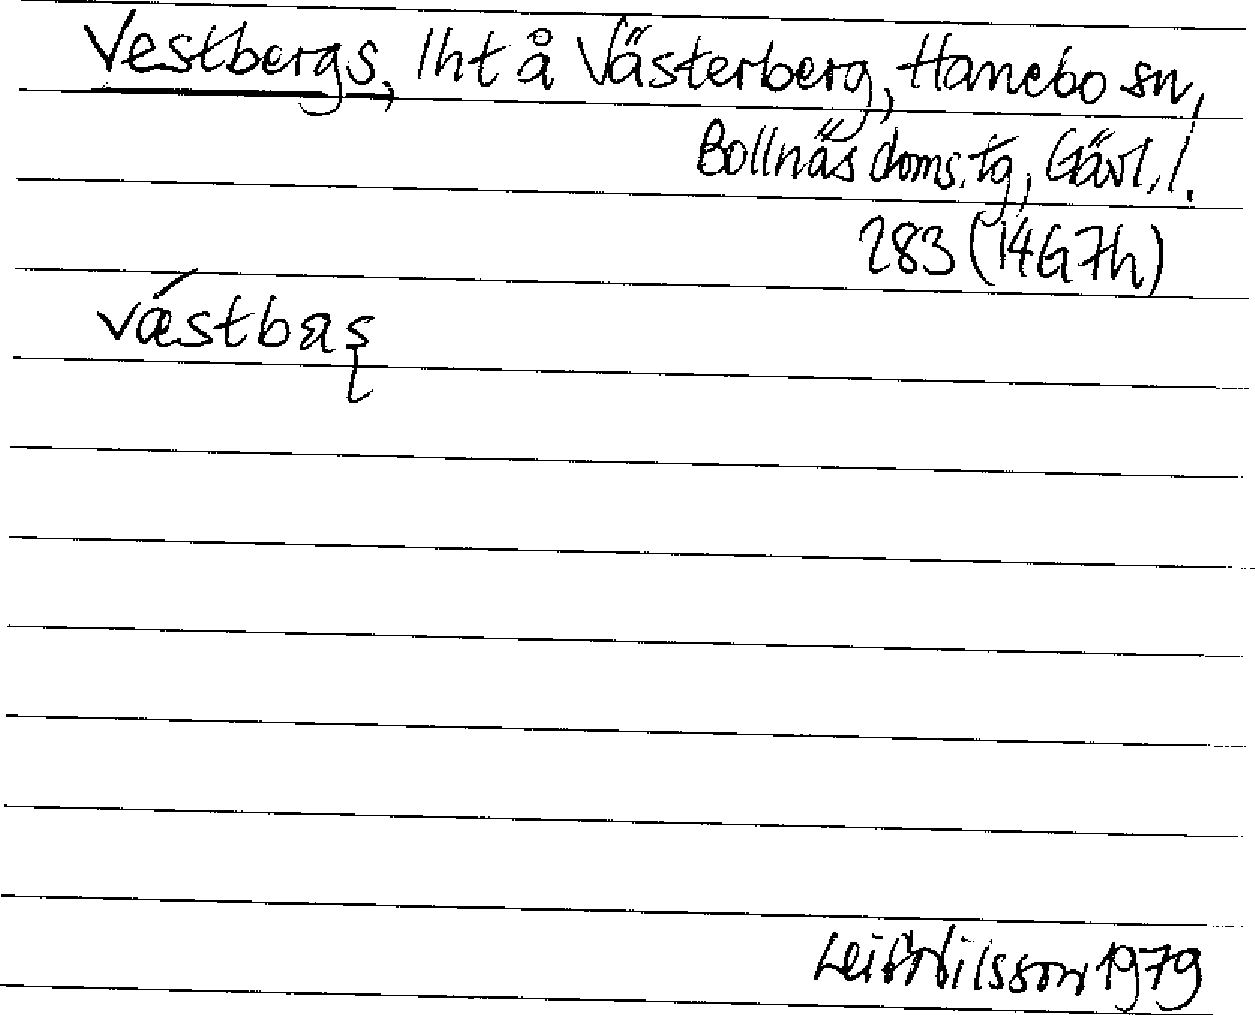 Vestbergs, lht å Västerberg, Hanebo sn,
Bollnäs doms.tg, Gävl. l.
283 (14G7h)
væ´stbas̨
Leif Nilsson 1979